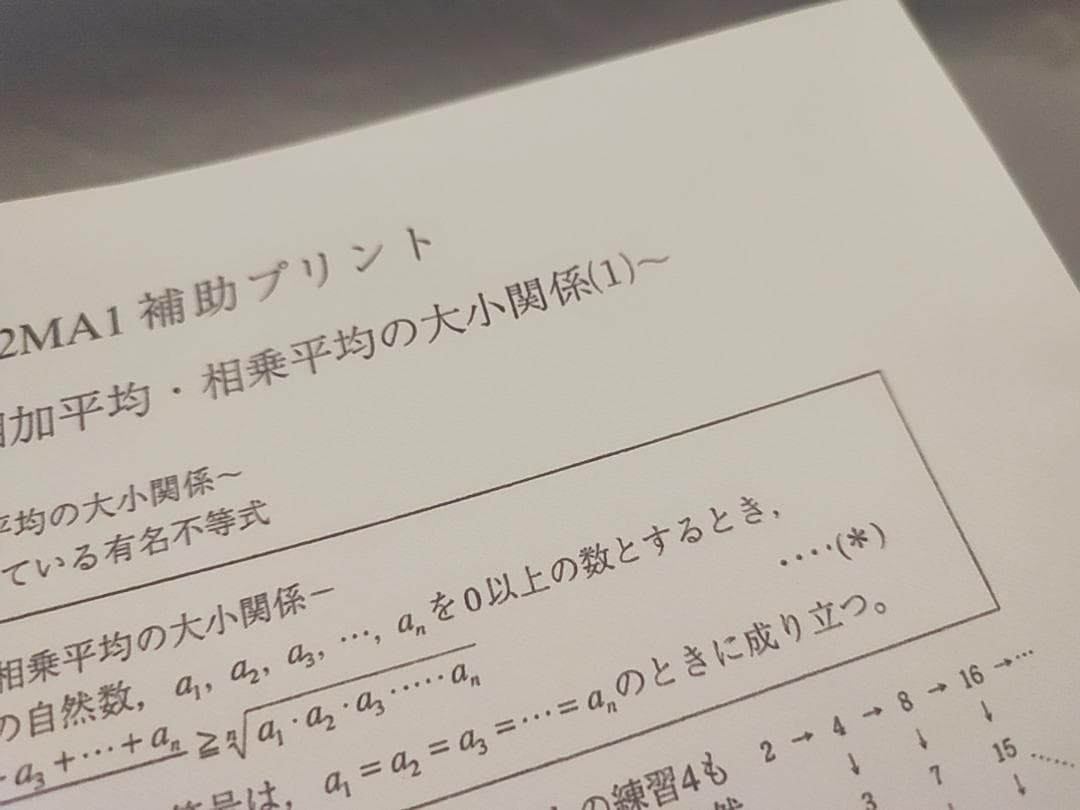 2MA1 補助プリント
加平均・相乗平均の大小関係(1)～
平均の大小関係～
ている有名不等式
相乗平均の大小関係－
の自然数, a₁, a₂, a₃, …, aₙを0以上の数とするとき,
a₃+⋯+aₙ ≧ ⁿ√a₁・a₂・a₃⋯⋯aₙ ‥‥(*)
号は, a₁=a₂=a₃=⋯=aₙのときに成り立つ。
の練習4も 2 → 4 → 8 → 16 →⋯
↓ ↓ ↓
3 7 15 ……
↓ ↓